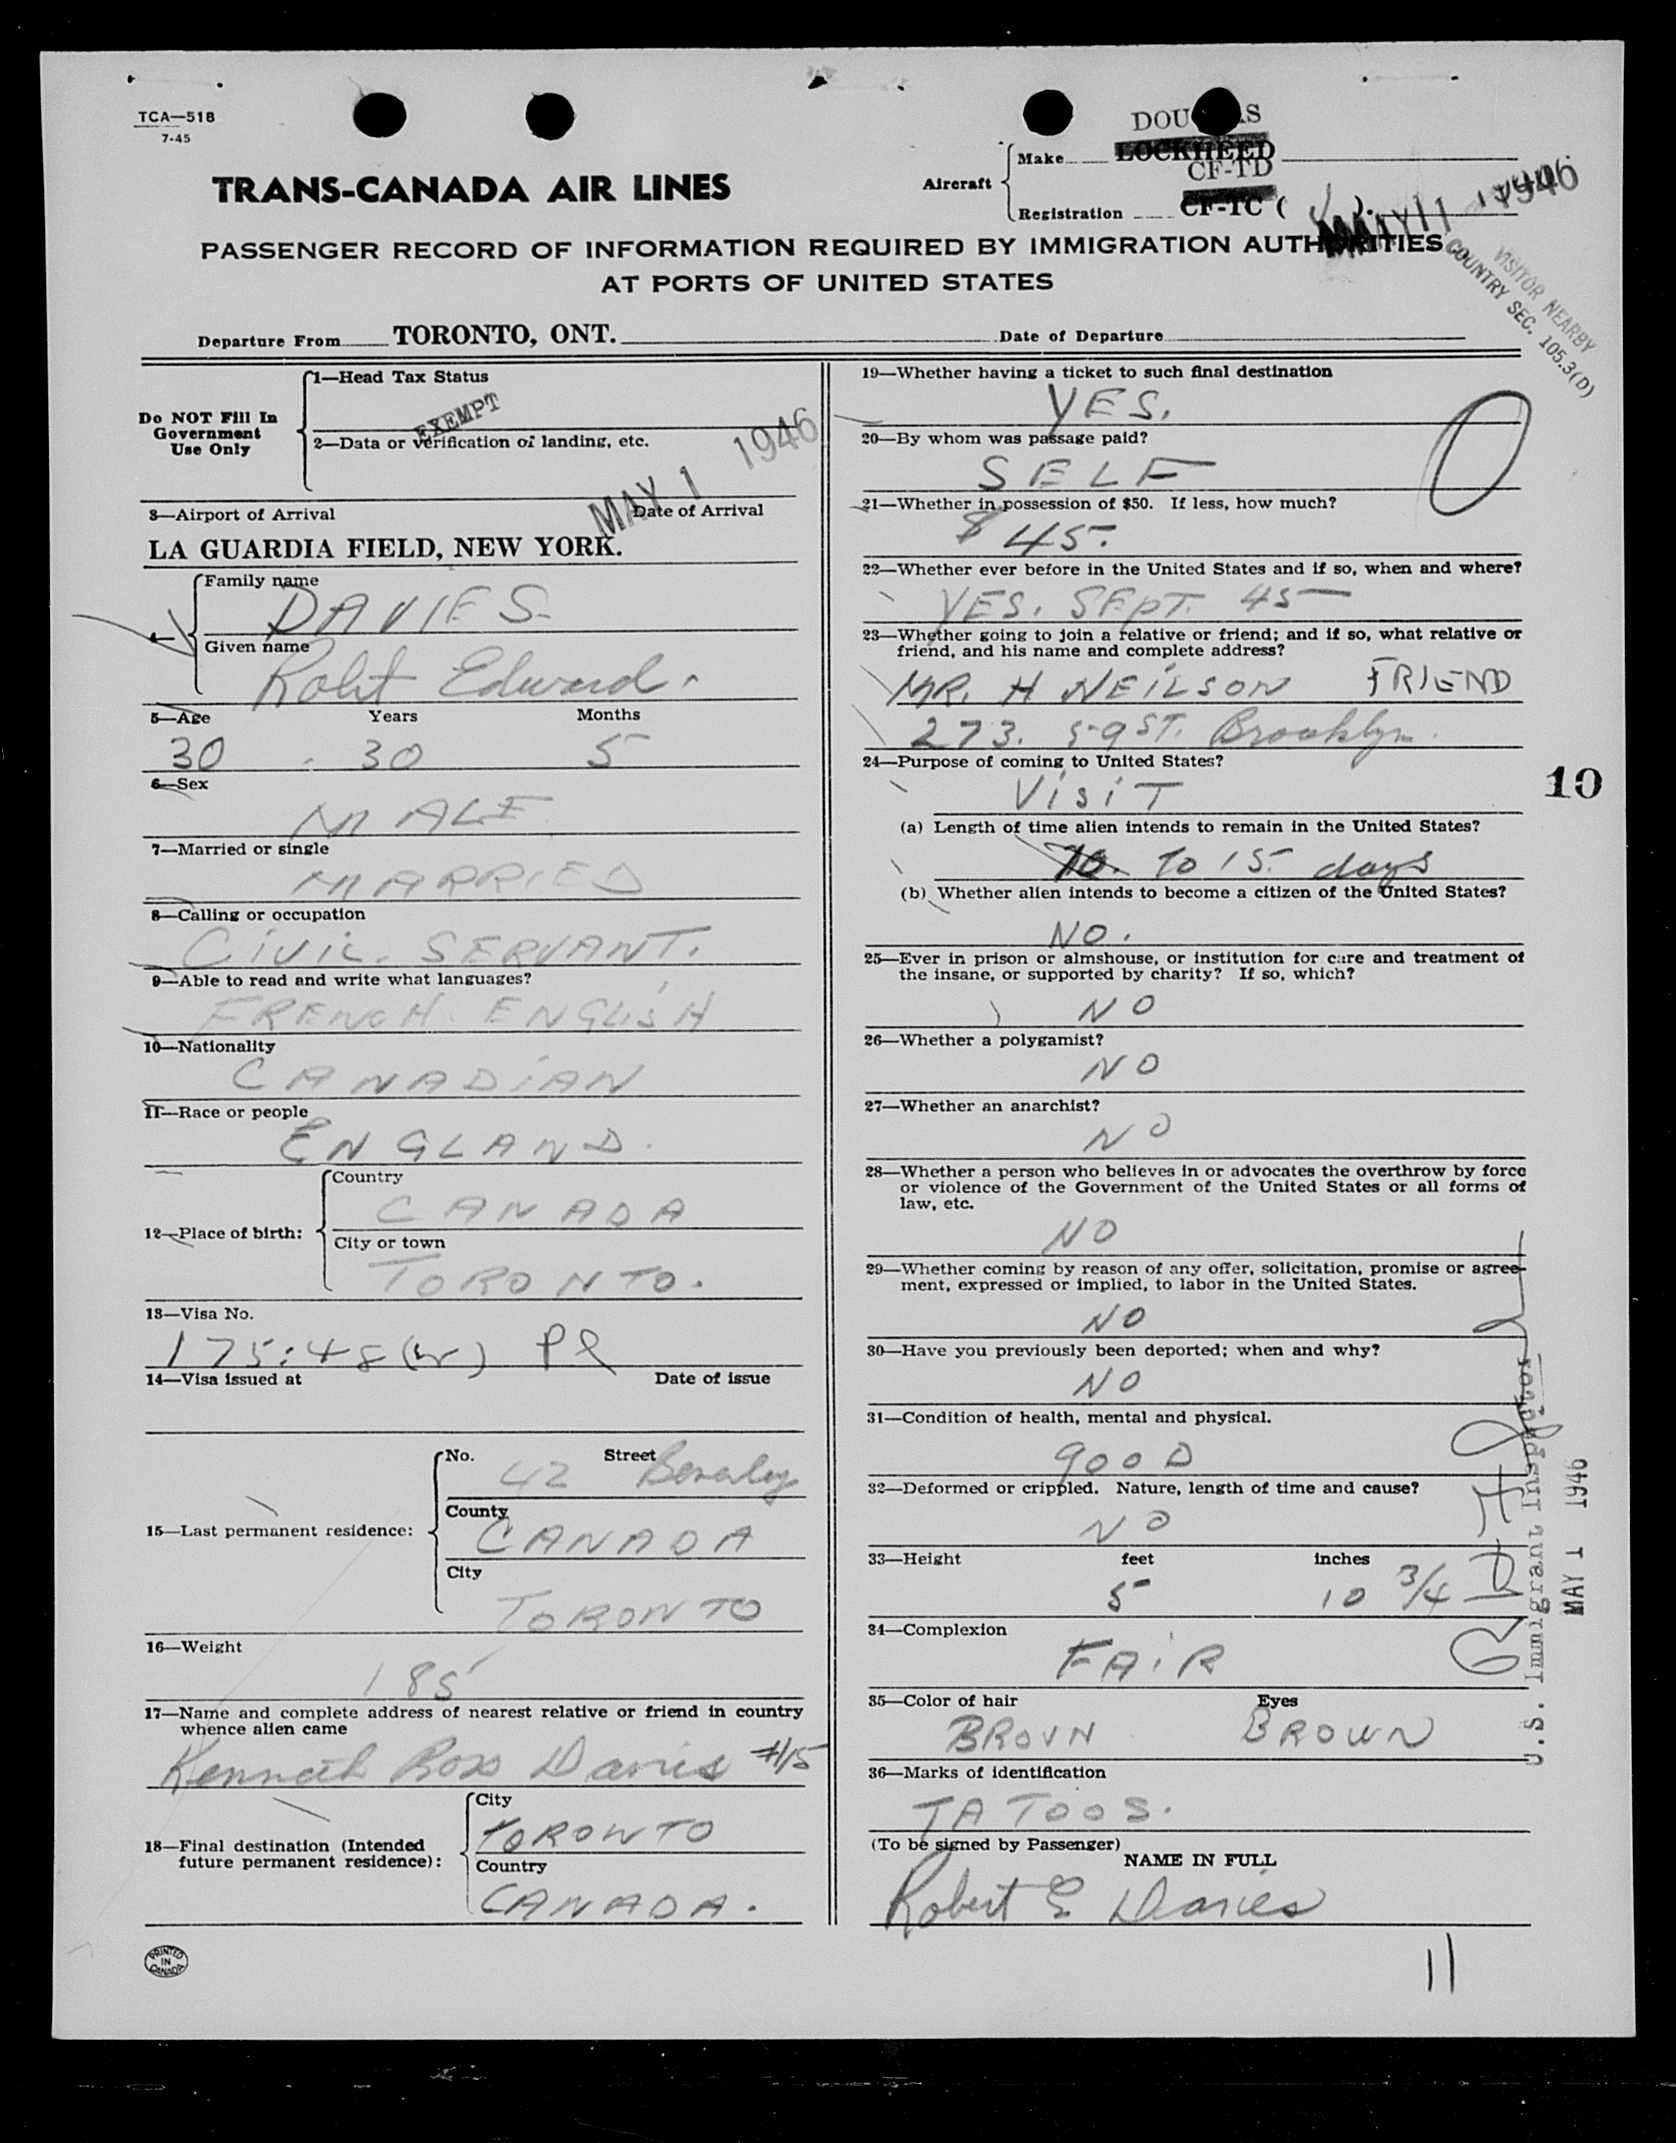 TCA—518
7-45
DOUGLAS
Aircraft
Make LOCKHEED
CF-TD
Registration CF-TC ( ).
MAY 1 1946
TRANS-CANADA AIR LINES
PASSENGER RECORD OF INFORMATION REQUIRED BY IMMIGRATION AUTHORITIES
AT PORTS OF UNITED STATES
VISITOR NEARBY
COUNTRY SEC. 105.3(D)
Departure From TORONTO, ONT. Date of Departure
Do NOT Fill In
Government
Use Only
1—Head Tax Status
EXEMPT
2—Data or verification of landing, etc.
MAY 1 1946
3—Airport of Arrival Date of Arrival
LA GUARDIA FIELD, NEW YORK.
4—
Family name
DAVIES
Given name
Robt Edward.
5—Age Years Months
30 30 5
6—Sex
MALE
7—Married or single
MARRIED
8—Calling or occupation
CiViL. SERVANT.
9—Able to read and write what languages?
FRENCH. ENGLiSH
10—Nationality
CANADiAN
11—Race or people
ENGLAND.
12—Place of birth:
Country
CANADA
City or town
TORONTO.
13—Visa No.
175:48(w) PL
14—Visa issued at Date of issue
15—Last permanent residence:
No. Street
42 Beverley
County
CANADA
City
TORONTO
16—Weight
185
17—Name and complete address of nearest relative or friend in country
whence alien came
Kenneth Ross Davies #15
18—Final destination (Intended
future permanent residence):
City
TORONTO
Country
CANADA.
PRINTED
IN
CANADA
19—Whether having a ticket to such final destination
YES.
20—By whom was passage paid?
SELF
21—Whether in possession of $50. If less, how much?
$ 45.
22—Whether ever before in the United States and if so, when and where?
YES. SEPT. 45
23—Whether going to join a relative or friend; and if so, what relative or
friend, and his name and complete address?
MR. H NEiLSON FRIEND
273. 59 ST. Brooklyn.
24—Purpose of coming to United States?
ViSiT
10
(a) Length of time alien intends to remain in the United States?
10. To 15. days
(b) Whether alien intends to become a citizen of the United States?
NO.
25—Ever in prison or almshouse, or institution for care and treatment of
the insane, or supported by charity? If so, which?
NO
26—Whether a polygamist?
NO
27—Whether an anarchist?
NO
28—Whether a person who believes in or advocates the overthrow by force
or violence of the Government of the United States or all forms of
law, etc.
NO
29—Whether coming by reason of any offer, solicitation, promise or agree-
ment, expressed or implied, to labor in the United States.
NO
30—Have you previously been deported; when and why?
NO
31—Condition of health, mental and physical.
GOOD
32—Deformed or crippled. Nature, length of time and cause?
NO
33—Height feet inches
5 10 3/4
34—Complexion
FAiR
35—Color of hair Eyes
BROWN BROWN
36—Marks of identification
TATOOS.
(To be signed by Passenger)
NAME IN FULL
Robert E Davies
U.S. Immigrant Inspector
MAY 1 1946
11